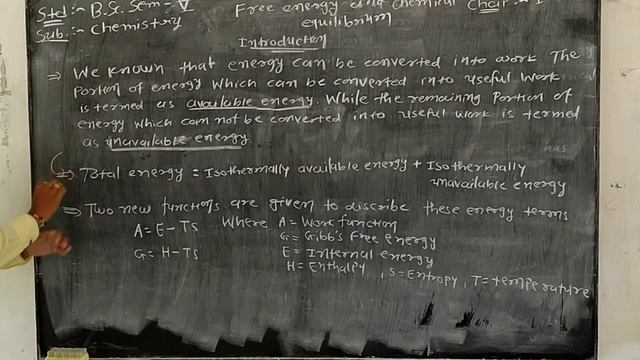 Std :- B.Sc. Sem - V Free energy and chemical Chap: I
Sub :- Chemistry equilibrium
Introduction
⇒ We known that energy can be converted into work The
Portion of energy which can be converted into useful work
is termed as available energy. While the remaining Portion of
energy which can not be converted into useful work is termed
as unavailable energy
⇒ Total energy = Isothermally available energy + Isothermally
unavailable energy
⇒ Two new functions are given to discribe these energy terms
A = E - TS Where A = Work function
G = Gibb's Free energy
G = H - TS E = Internal energy
H = Enthalpy, S = Entropy, T = temperature